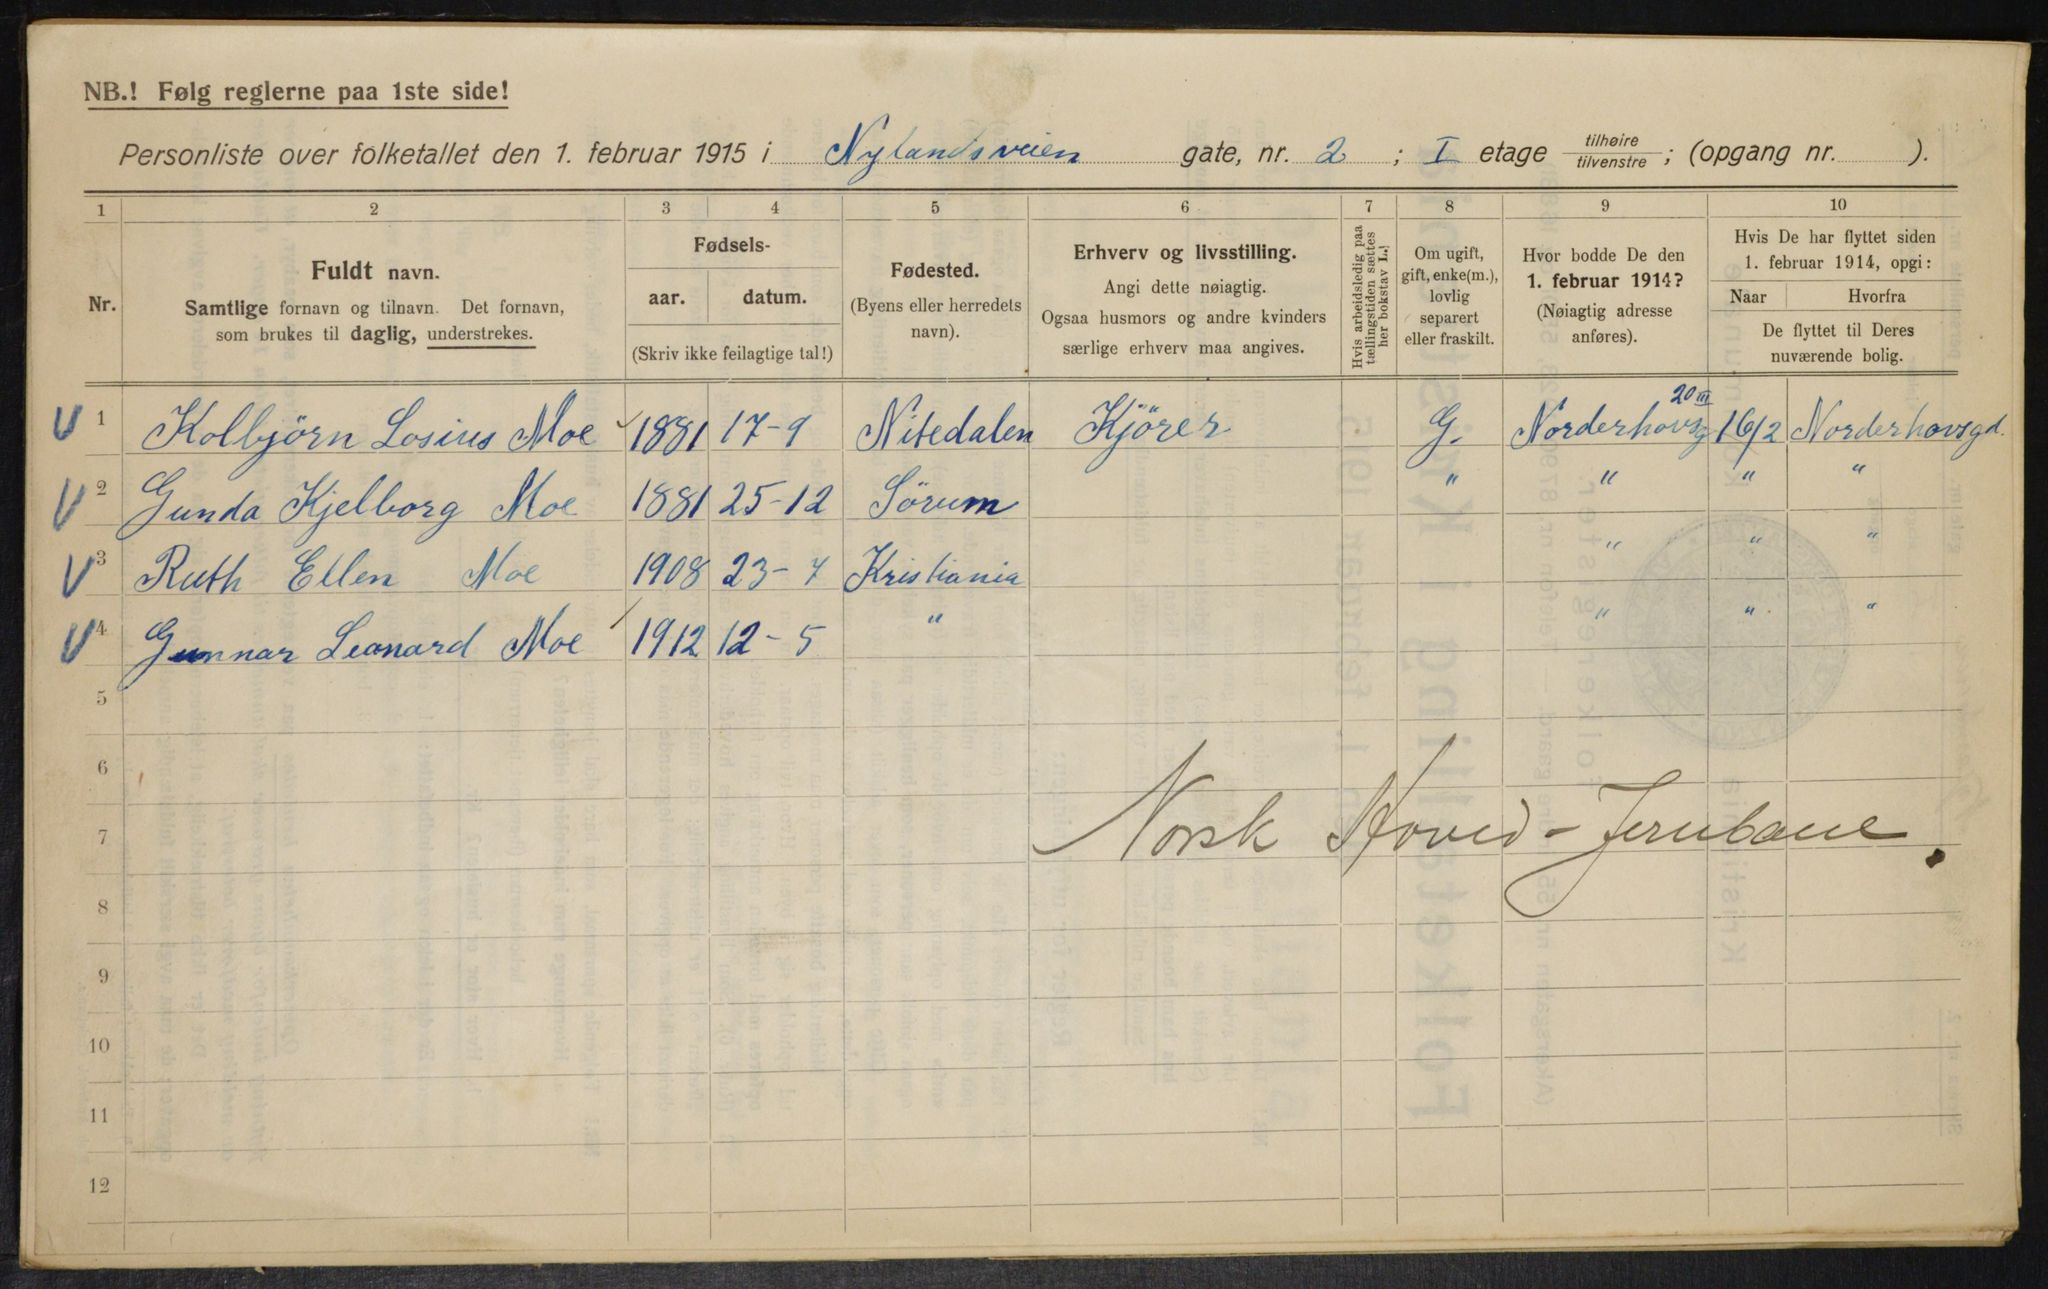 NB.! Følg reglerne paa 1ste side!
Personliste over folketallet den 1. februar 1915 i Nylandsveien gate, nr. 2 ; I etage tilhøire / tilvenstre ; (opgang nr. ).
1 2 3 4 5 6 7 8 9 10
Nr.
Fuldt navn.
Samtlige fornavn og tilnavn. Det fornavn,
som brukes til daglig, understrekes.
Fødsels-
aar. datum.
(Skriv ikke feilagtige tal!)
Fødested.
(Byens eller herredets
navn).
Erhverv og livsstilling.
Angi dette nøiagtig.
Ogsaa husmors og andre kvinders
særlige erhverv maa angives.
Hvis arbeidsledig paa
tællingstiden sættes
her bokstav L.!
Om ugift,
gift, enke(m.),
lovlig
separert
eller fraskilt.
Hvor bodde De den
1. februar 1914?
(Nøiagtig adresse
anføres).
Hvis De har flyttet siden
1. februar 1914, opgi:
Naar Hvorfra
De flyttet til Deres
nuværende bolig.
1 Kolbjörn Losius Moe 1881 17-9 Nitedalen Kjörer G. Norderhovsg 20 III 16/2 Norderhovsgd.
2 Gunda Kjelborg Moe 1881 25-12 Sörum " " " "
3 Ruth Ellen Moe 1908 23-7 Kristiania " " "
4 Gunnar Leonard Moe 1912 12-5 " " " "
5
6
7 Norsk Hoved-Jernbane.
8
9
10
11
12